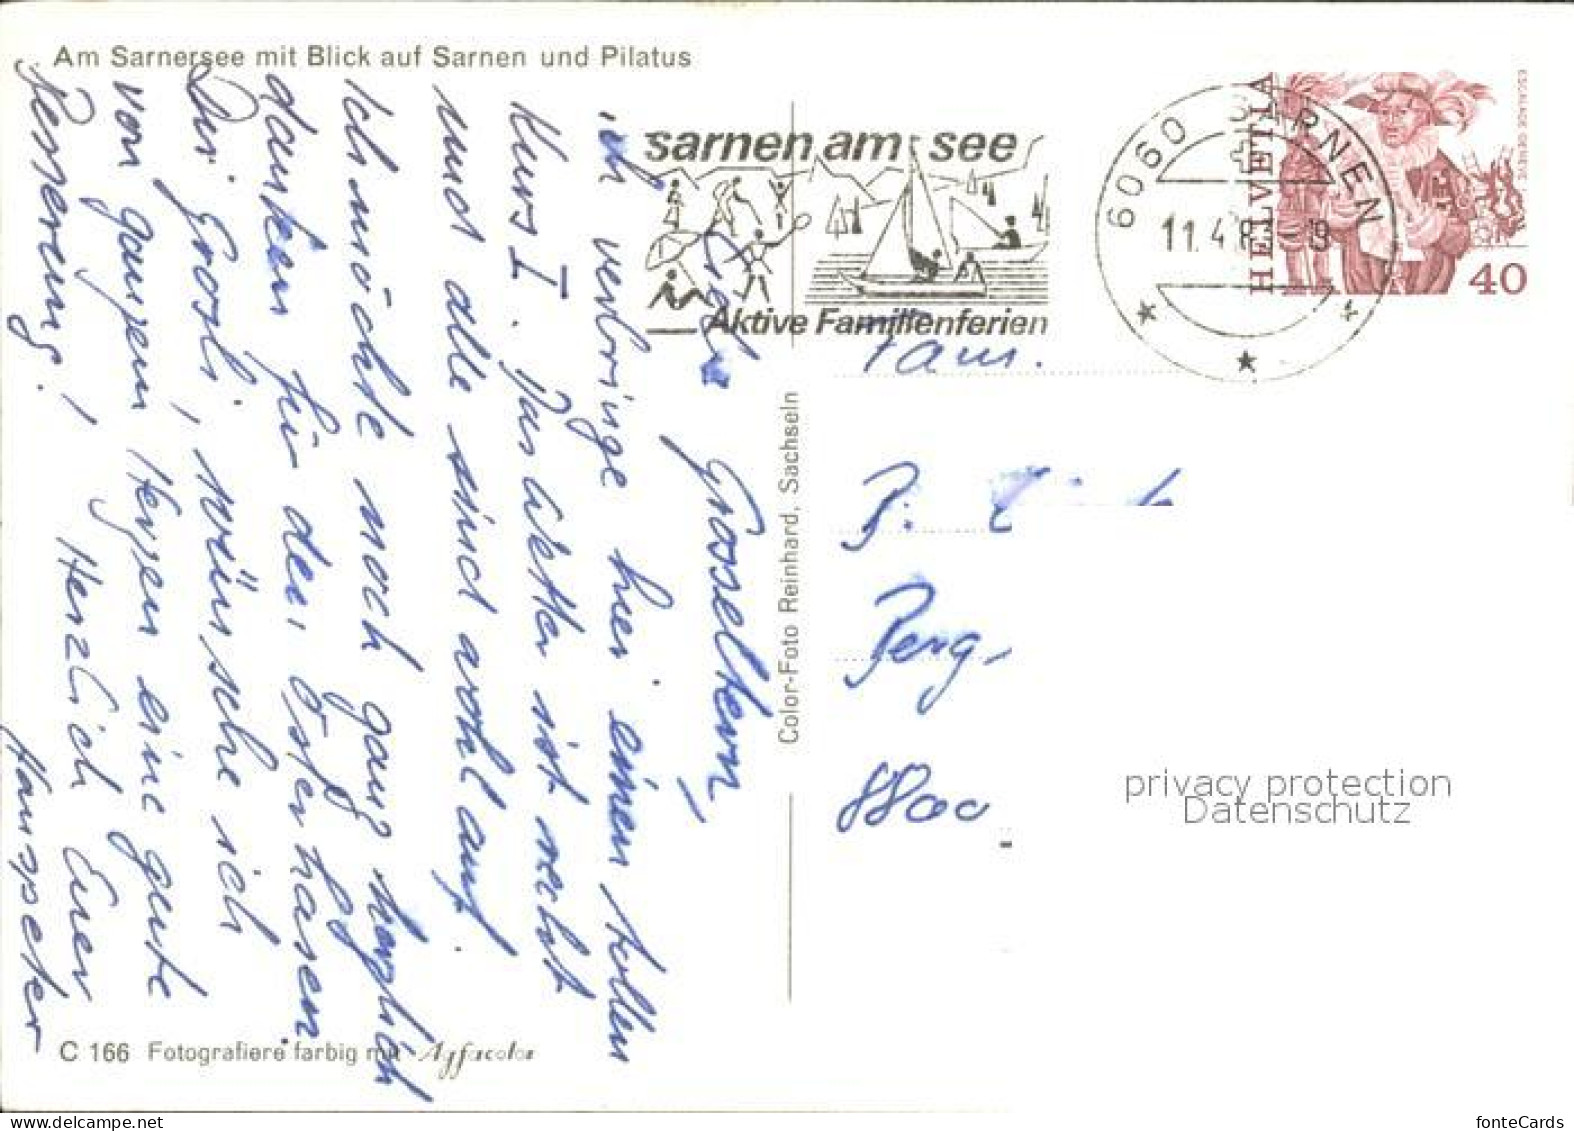 Am Sarnersee mit Blick auf Sarnen und Pilatus
sarnen am see
Aktive Familienferien
6060 SARNEN
11.4.83
HELVETIA
ESCALADE GENÈVE
40
Grosseltern,
ich verbringe hier einen tollen
Kurs I. Das Wetter ist recht
und alle sind wohl auf.
Ich möchte noch ganz herzlich
danken für den Osterhasen.
Dir Grosli, wünsche ich
von ganzem Herzen eine gute
Besserung! Herzlich Euer
Hanspeter
Color-Foto Reinhard, Sachseln
Fam.
Berg
88oo
privacy protection
Datenschutz
C 166 Fotografiere farbig mit Agfacolor
fonteCards